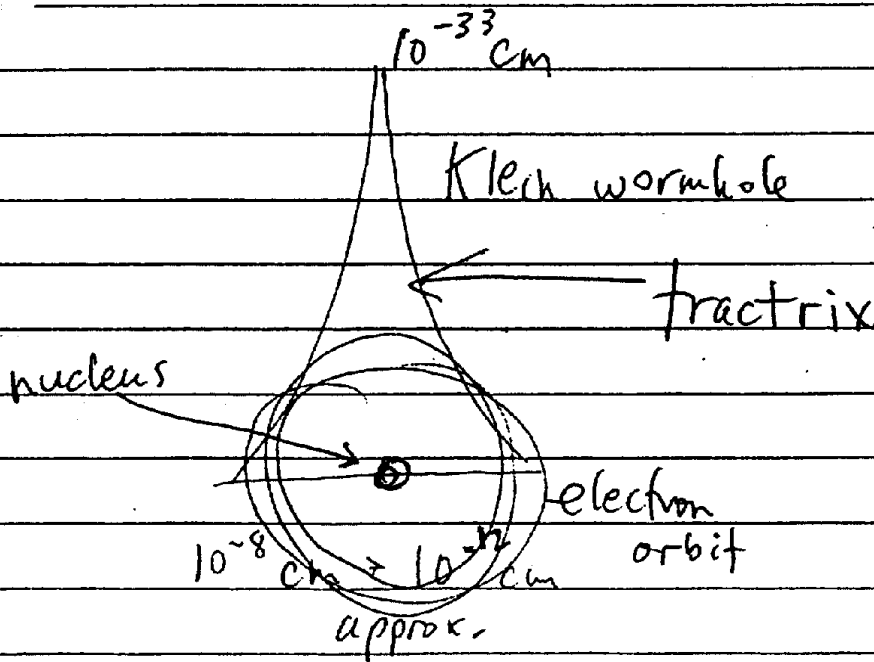 10⁻³³ cm
wormhole
tractrix
nucleus
electron
orbit
10⁻⁸ cm > 10⁻ⁿ cm
approx.